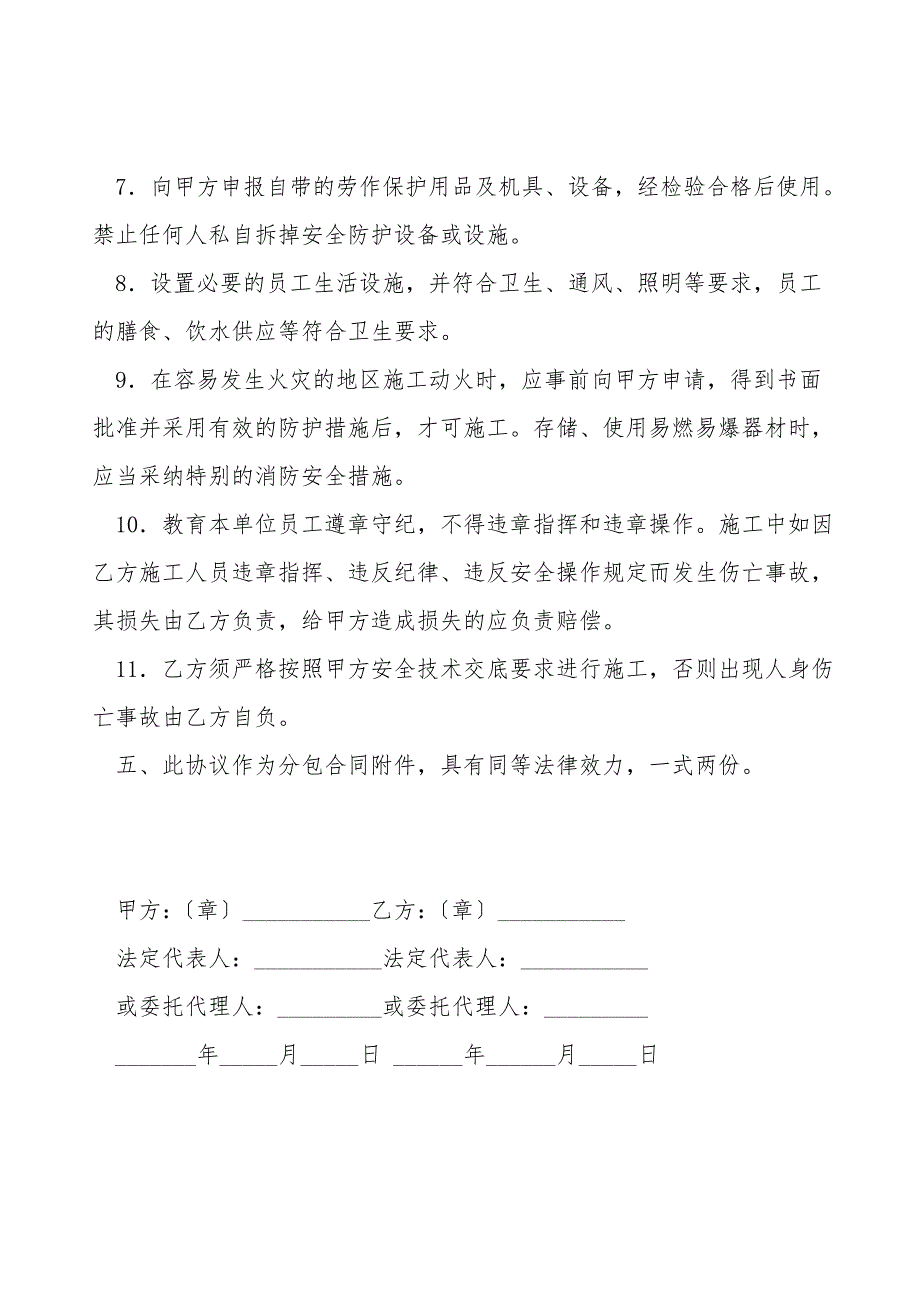 7．向甲方申报自带的劳作保护用品及机具、设备，经检验合格后使用。
禁止任何人私自拆掉安全防护设备或设施。
8．设置必要的员工生活设施，并符合卫生、通风、照明等要求，员工
的膳食、饮水供应等符合卫生要求。
9．在容易发生火灾的地区施工动火时，应事前向甲方申请，得到书面
批准并采用有效的防护措施后，才可施工。存储、使用易燃易爆器材时，
应当采纳特别的消防安全措施。
10．教育本单位员工遵章守纪，不得违章指挥和违章操作。施工中如因
乙方施工人员违章指挥、违反纪律、违反安全操作规定而发生伤亡事故，
其损失由乙方负责，给甲方造成损失的应负责赔偿。
11．乙方须严格按照甲方安全技术交底要求进行施工，否则出现人身伤
亡事故由乙方自负。
五、此协议作为分包合同附件，具有同等法律效力，一式两份。
甲方：〔章〕___________乙方：〔章〕___________
法定代表人：___________法定代表人：___________
或委托代理人：_________或委托代理人：_________
_______年_____月_____日 ______年______月_____日